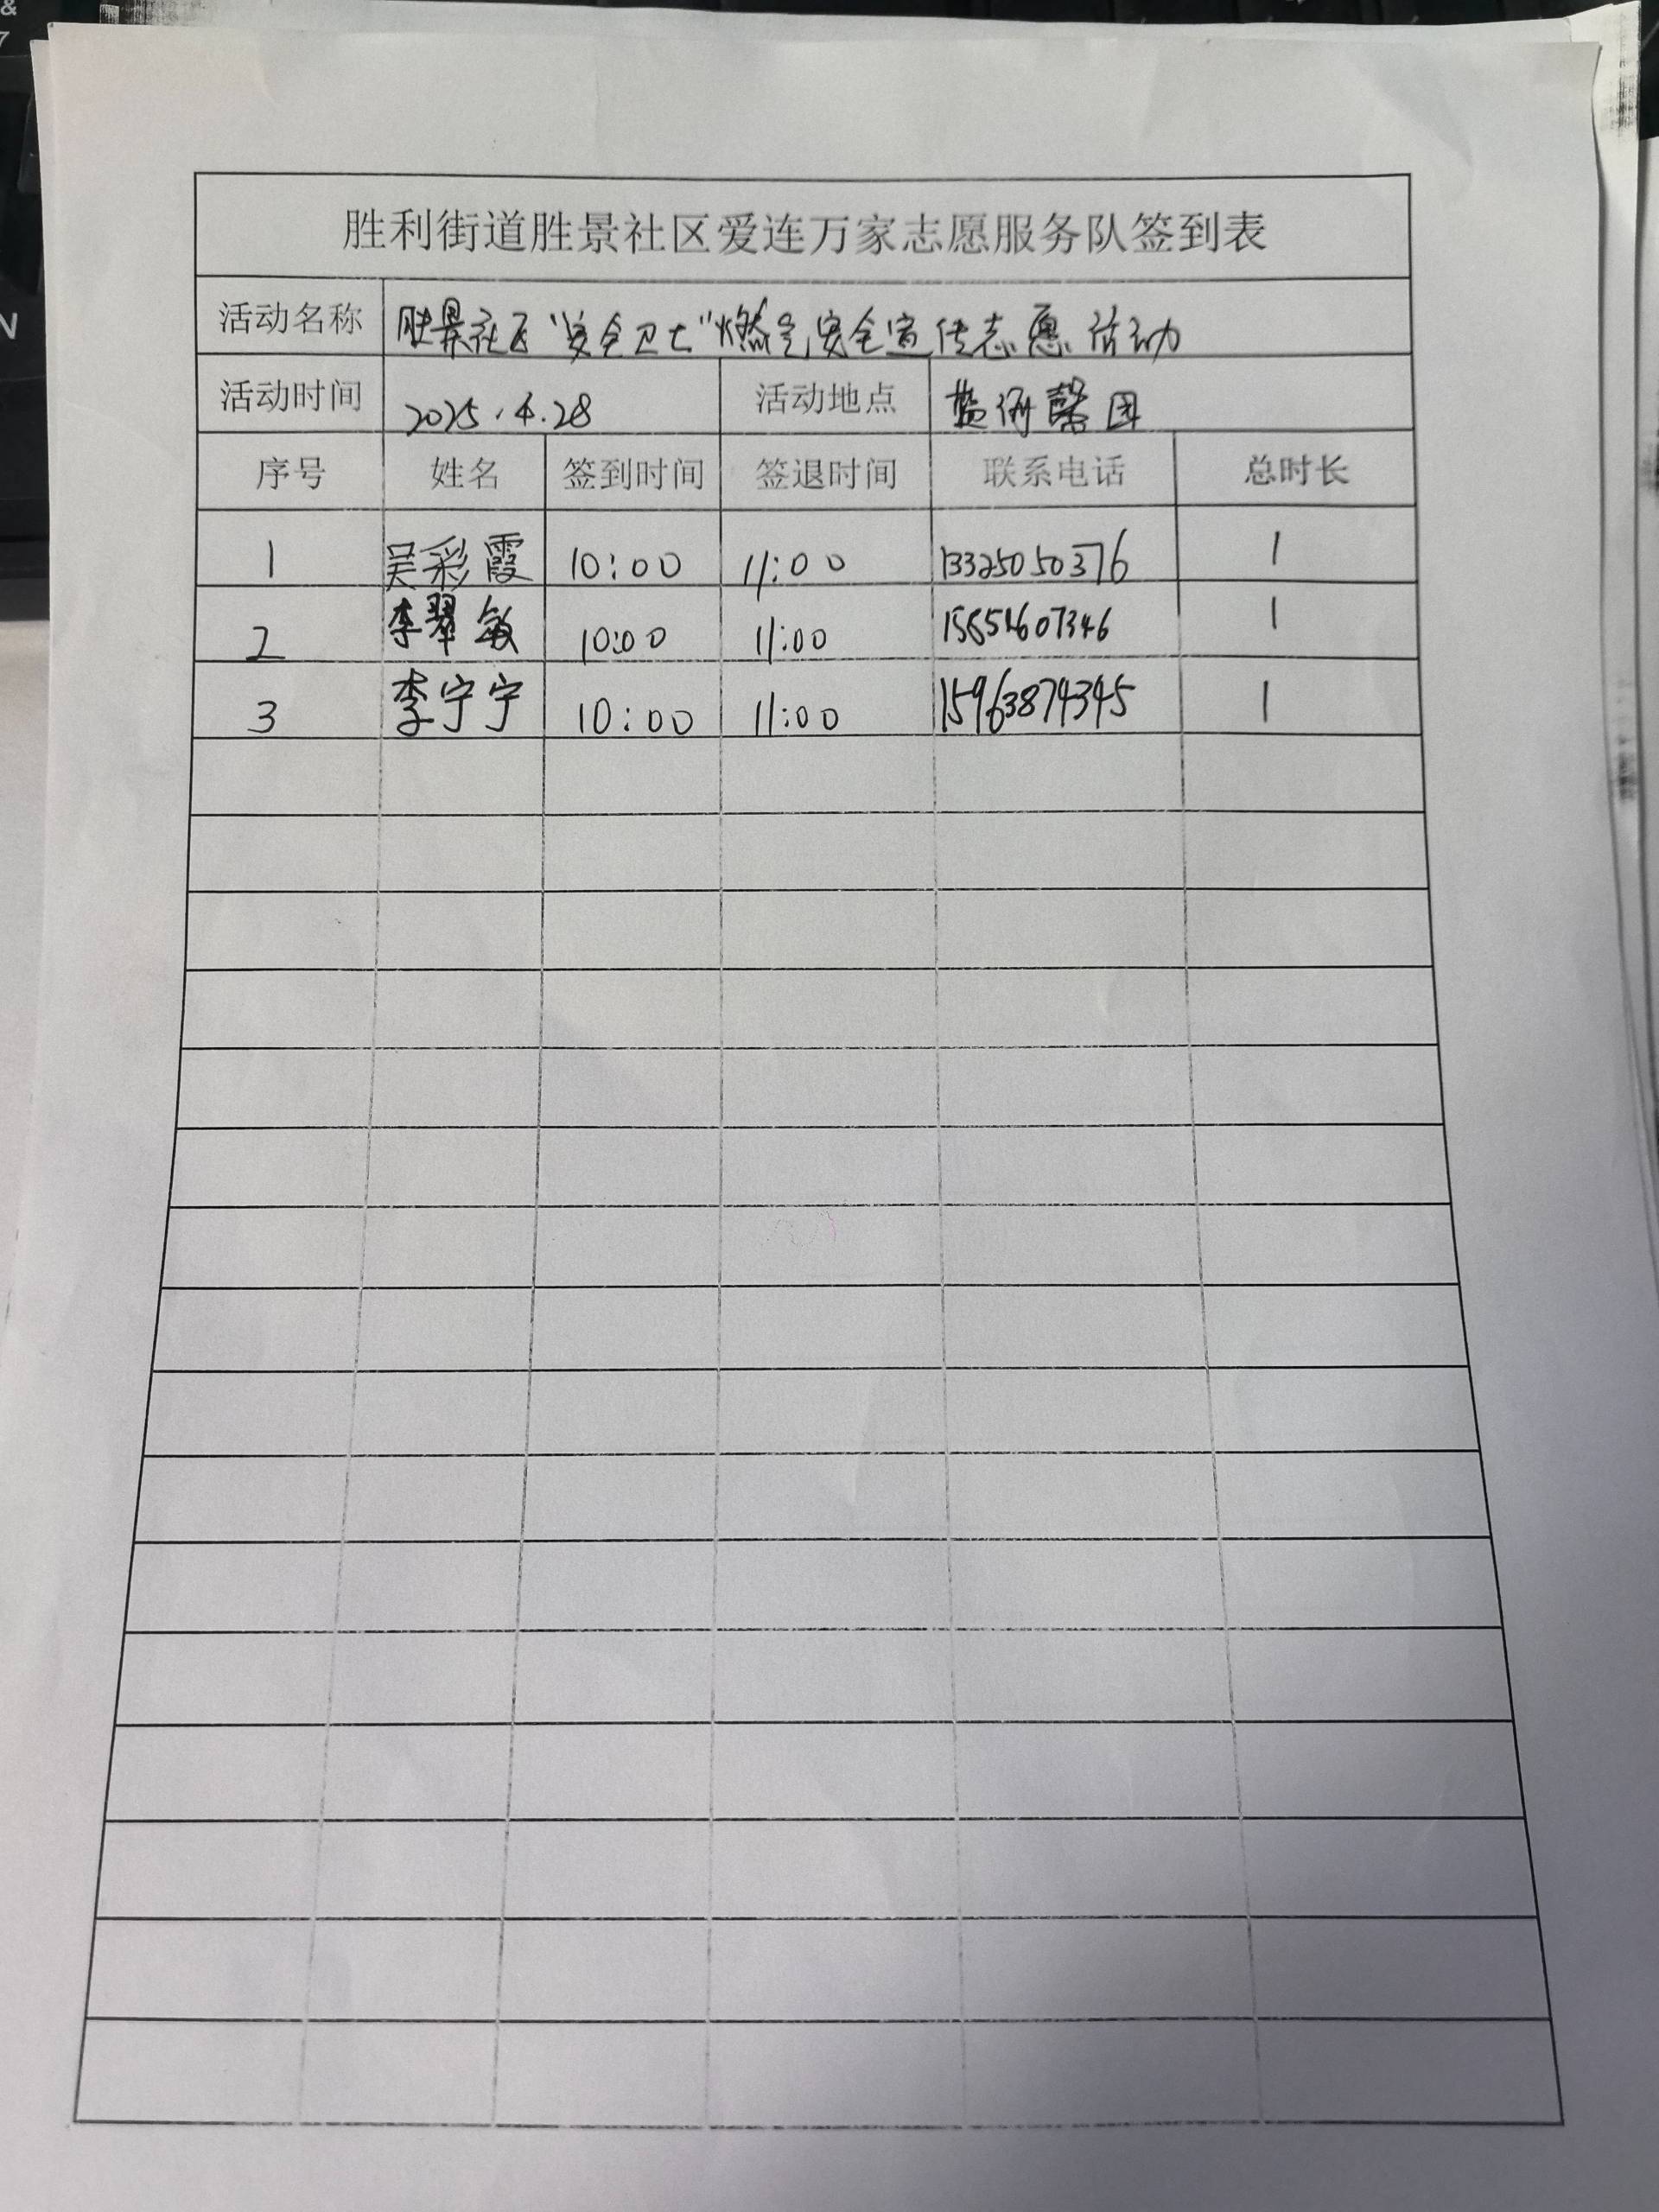 胜利街道胜景社区爱连万家志愿服务队签到表
活动名称 胜景社区“安全卫士”燃气安全宣传志愿活动
活动时间 2025.4.28 活动地点 馨园
序号 姓名 签到时间 签退时间 联系电话 总时长
1 吴彩霞 10:00 11:00 13325050376 1
2 李翠敏 10:00 11:00 1
3 李宁宁 10:00 11:00 15963874345 1